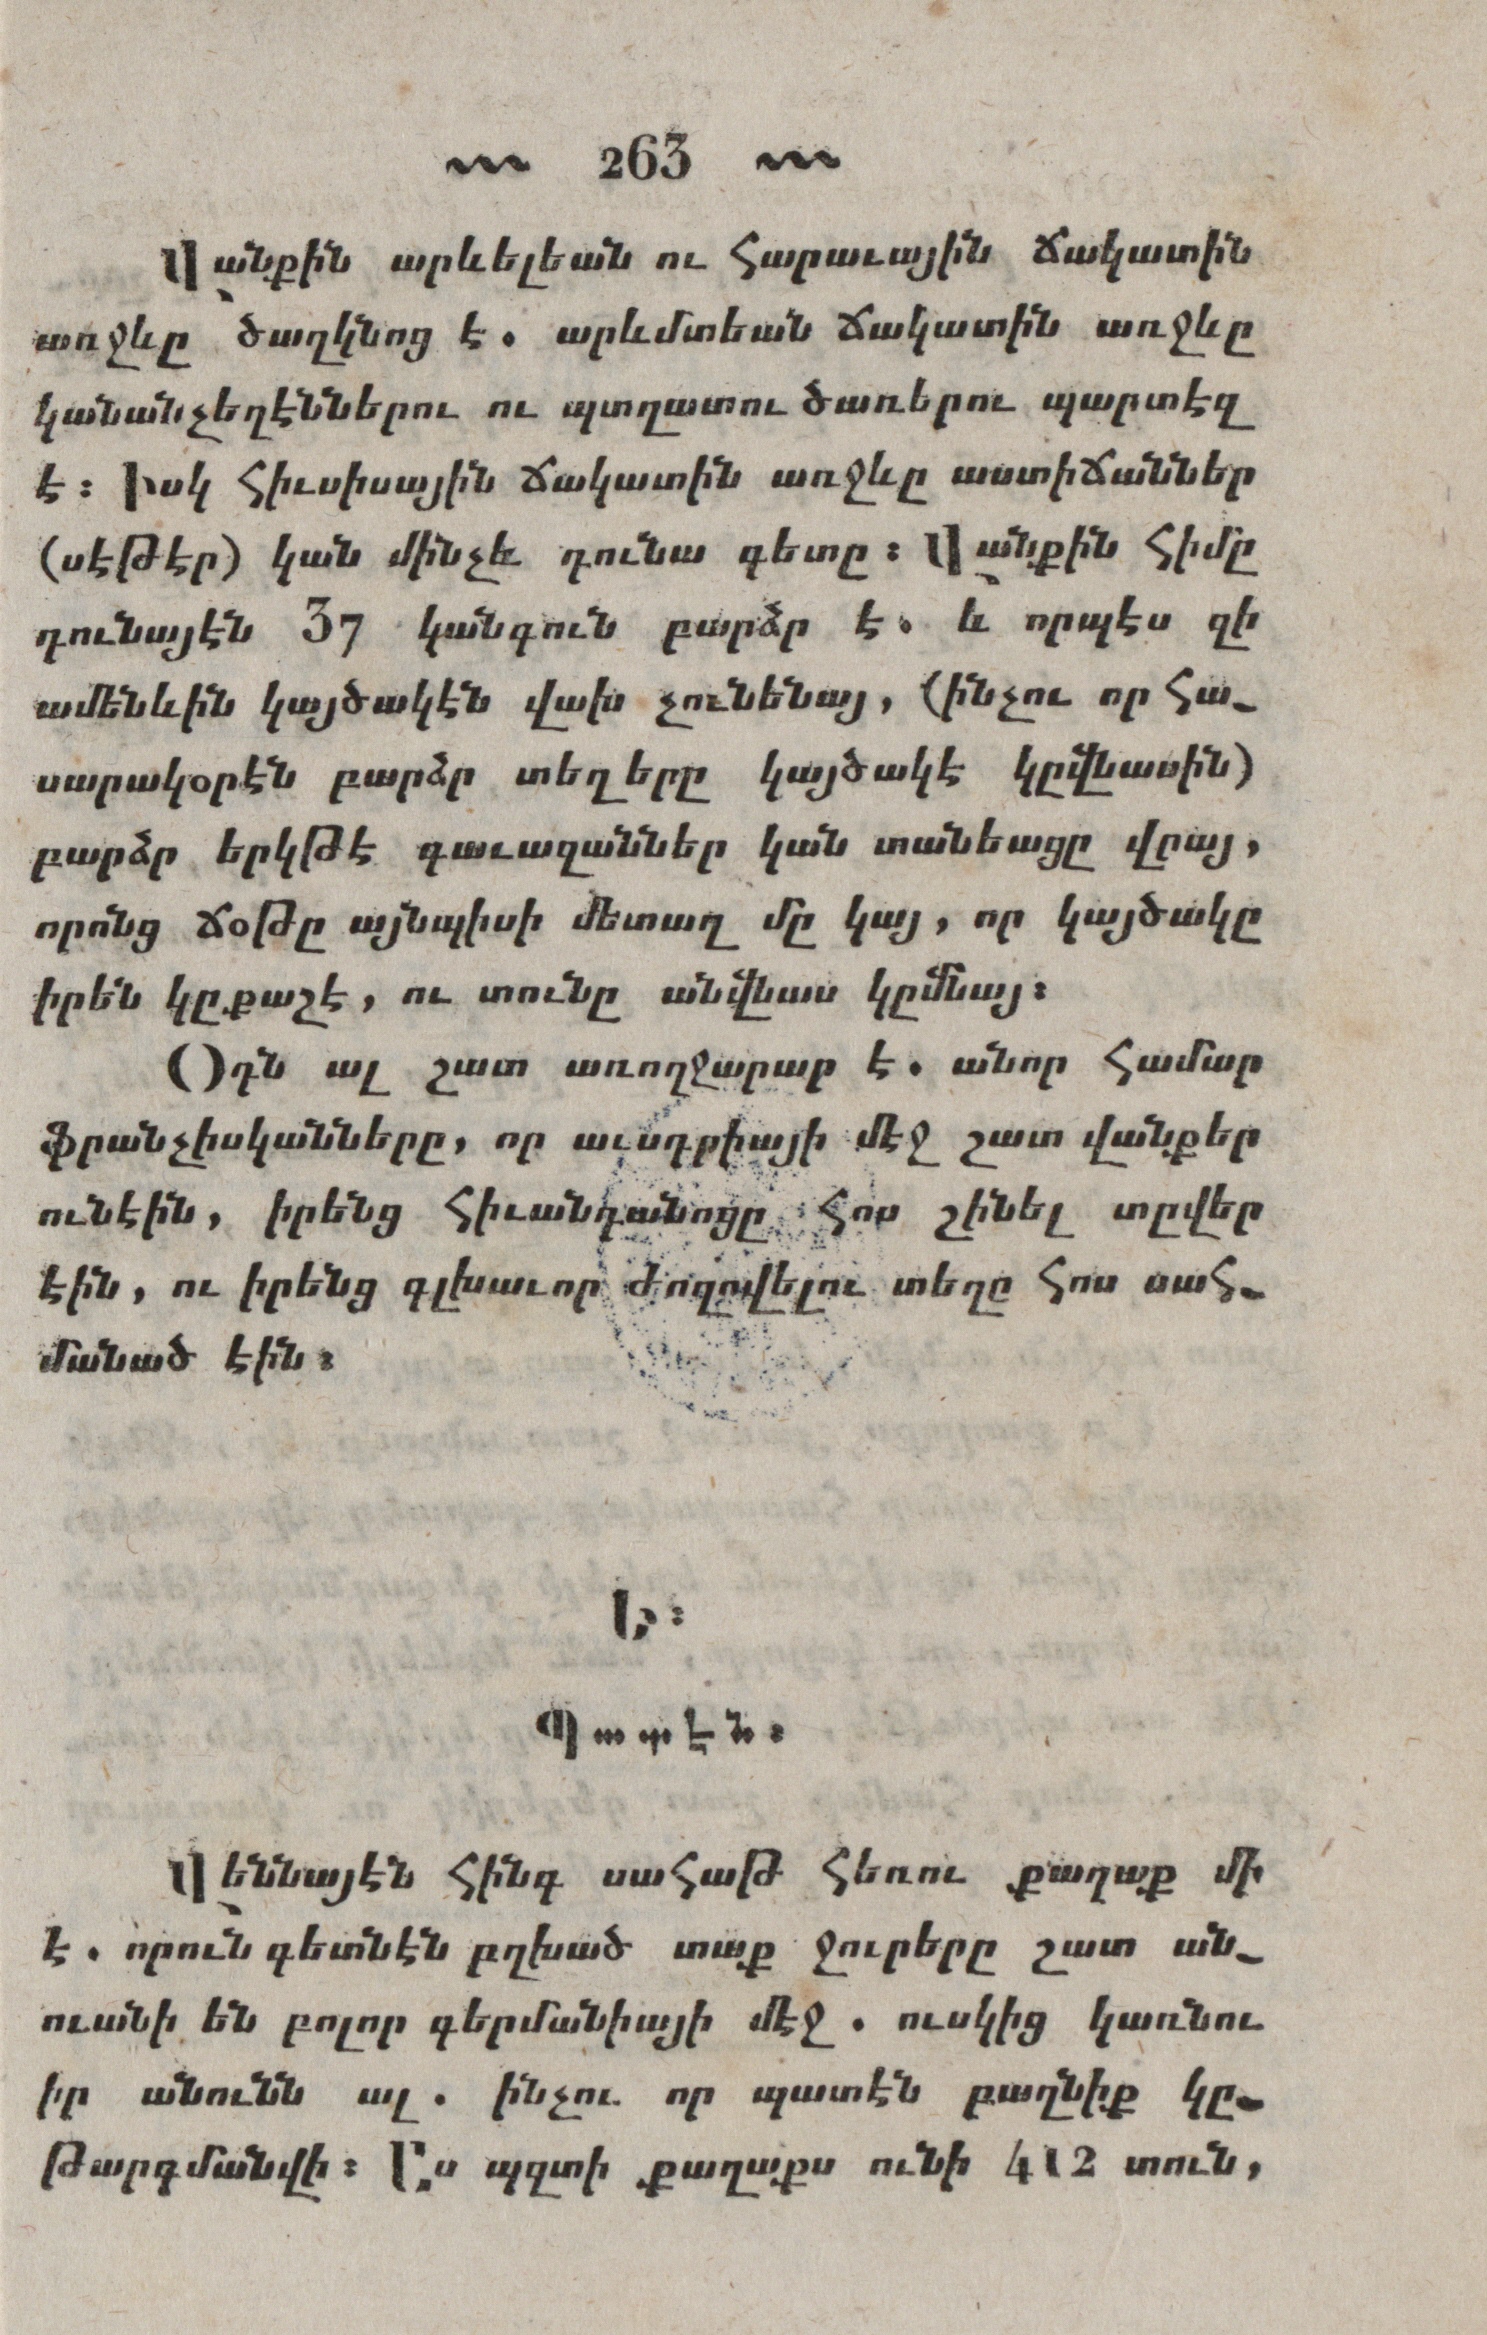 263
Վանքին արևելեան ու հարաւային ճակատին
առջևը ծաղկնոց է. արևմտեան ճակատին առջևը
կանանչեղէններու ու պտղատու ծառերու պարտէզ
է։ Իսկ հիւսիսային ճակատին առջևը աստիճաններ
(սէթէր) կան մինչև դունա գետը։ Վանքին հիմը
դունայէն 37 կանգուն բարձր է. և որպէս զի
ամենևին կայծակէն վախ չունենայ, (ինչու որ հա-
սարակօրէն բարձր տեղերը կայծակէ կըվնասին)
բարձր երկթէ գաւազաններ կան տանեացը վրայ,
որոնց ճօթը այնպիսի մետաղ մը կայ, որ կայծակը
իրեն կըքաշէ, ու տունը անվնաս կըմնայ։
Օդն ալ շատ առողջարար է. անոր համար
ֆրանչիսկանները, որ աւսդրիայի մէջ շատ վանքեր
ունէին, իրենց հիւանդանոցը հոս շինել տըվեր
էին, ու իրենց գլխաւոր ժողովելու տեղը հոս սահ-
մանած էին։
Է։
Պատէն։
Վեննայէն հինգ սահաթ հեռու քաղաք մի
է. որուն գետնէն բղխած տաք ջուրերը շատ ան-
ուանի են բոլոր գերմանիայի մէջ. ուսկից կառնու
իր անունն ալ. ինչու որ պատէն բաղնիք կը-
թարգմանվի։ Էս պզտի քաղաքս ունի 412 տուն,